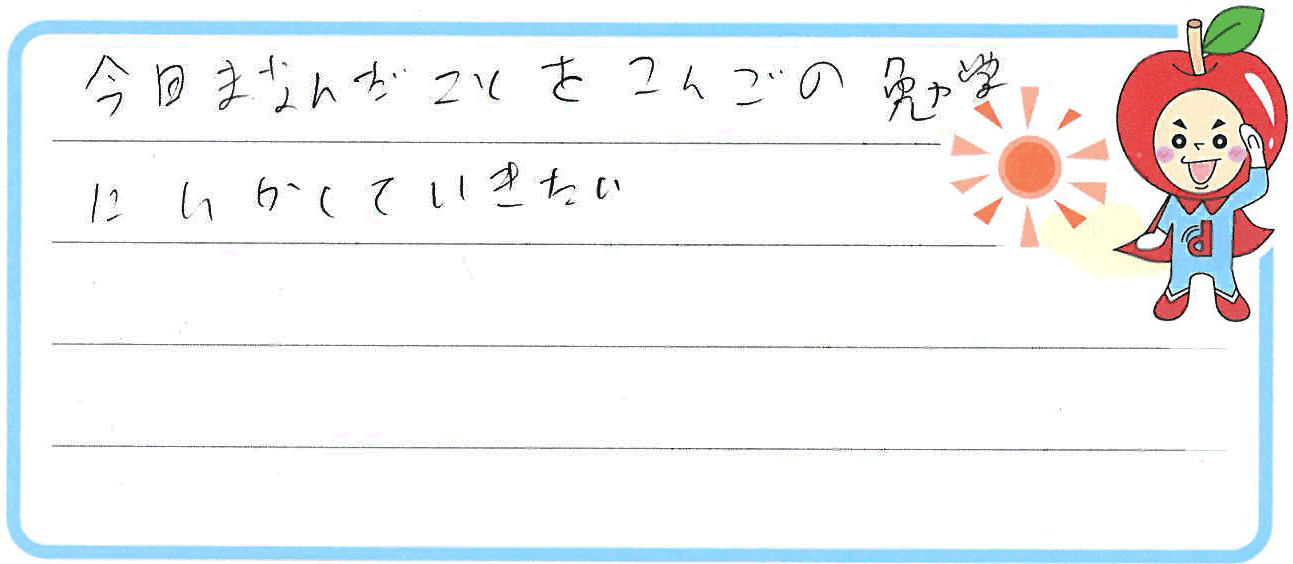 今回まなんだことをこんごの勉学
にいかしていきたい